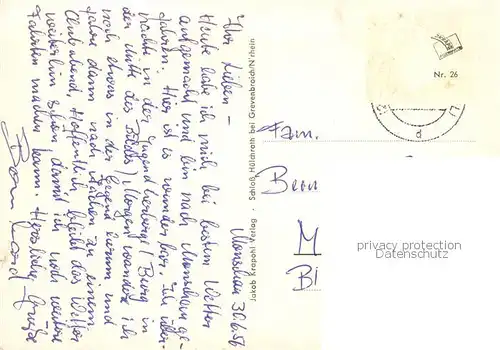 Monschau 30.6.56
Ihr Lieben –
Heute habe ich mich bei bestem Wetter
aufgemacht und bin nach Monschau ge-
fahren. Hier ist es wunderbar. Ich über-
nachte in der Jugendherberge (Burg in
der Mitte des Bildes). Morgen wandere ich
noch etwas in der Gegend herum und
fahre dann nach Aachen zu einem
Clubabend. Hoffentlich bleibt das Wetter
weiterhin schön damit ich noch weitere
Fahrten machen kann. Herzliche Grüße
Jakob Krapohl Verlag · Schloß Hülchrath bei Grevenbroich/N'rhein
Nr. 26
Fam.
Bern
M
Bi
privacy protection
Datenschutz